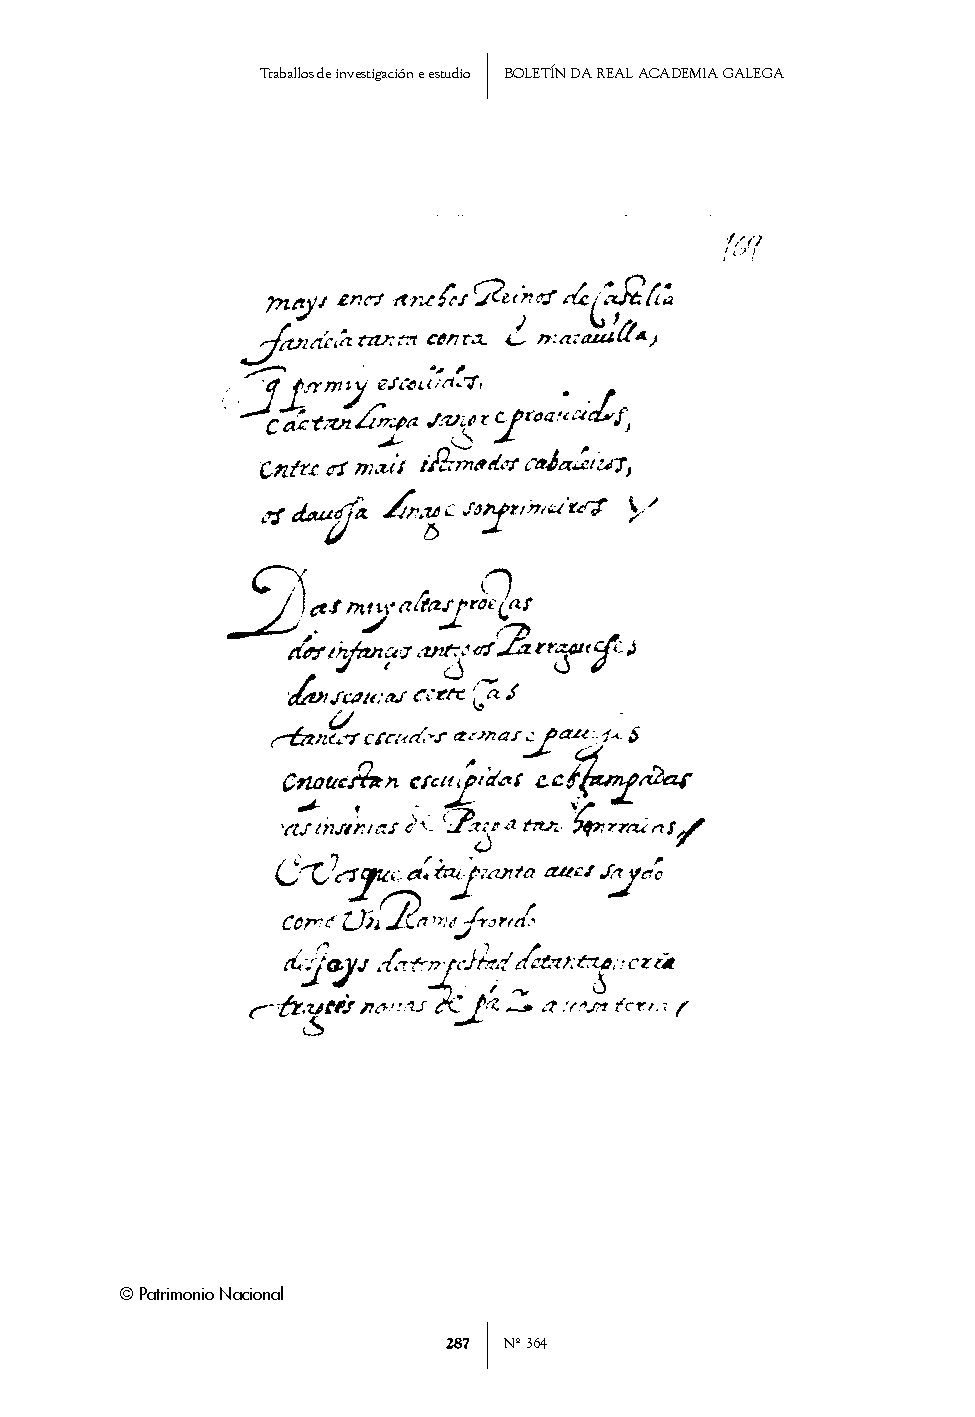 Traballos de investigación e estudio
BOLETÍN DA REAL ACADEMIA GALEGA
169
mays enos anchos Reinos de Castilla
fan dela tanta conta é marauilla,
q por muy escollidos,
e de tan limpa sangre produzidos,
entre os mais istimados cabaleiros,
os da uosa linage son primeiros
Das muy altas proezas
dos infanços antigos Parragueses
dan sas certezas
tantos escudos armas e paueses
en que estan esculpidas e estampadas
as insinias de Paga tan honrradas,
E Vos que de tal pranta aues saydo
como Un Ramo frorido
despays da tempestad de tanta guerra
trages nouas de paz a uosa terra
© Patrimonio Nacional
287
Nº 364